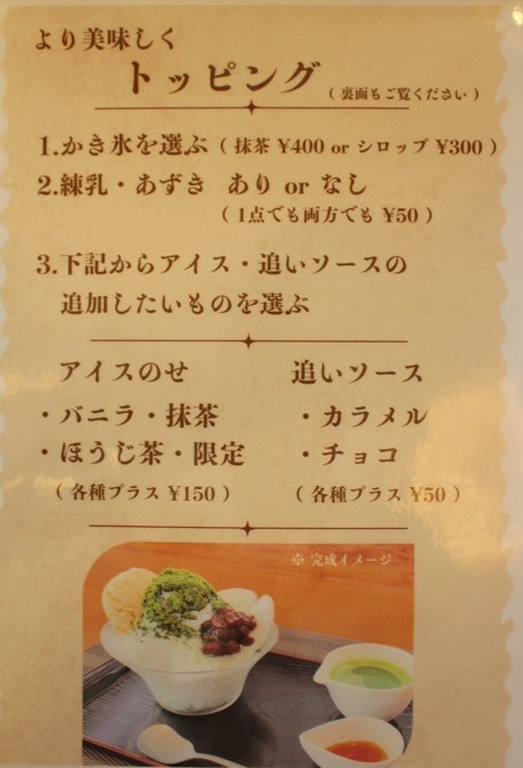 より美味しく
トッピング
（裏面もご覧ください）
1.かき氷を選ぶ（抹茶 ¥400 or シロップ ¥300）
2.練乳・あずき あり or なし
（1点でも両方でも ¥50）
3.下記からアイス・追いソースの
追加したいものを選ぶ
アイスのせ
・バニラ・抹茶
・ほうじ茶・限定
（各種プラス ¥150）
追いソース
・カラメル
・チョコ
（各種プラス ¥50）
※ 完成イメージ